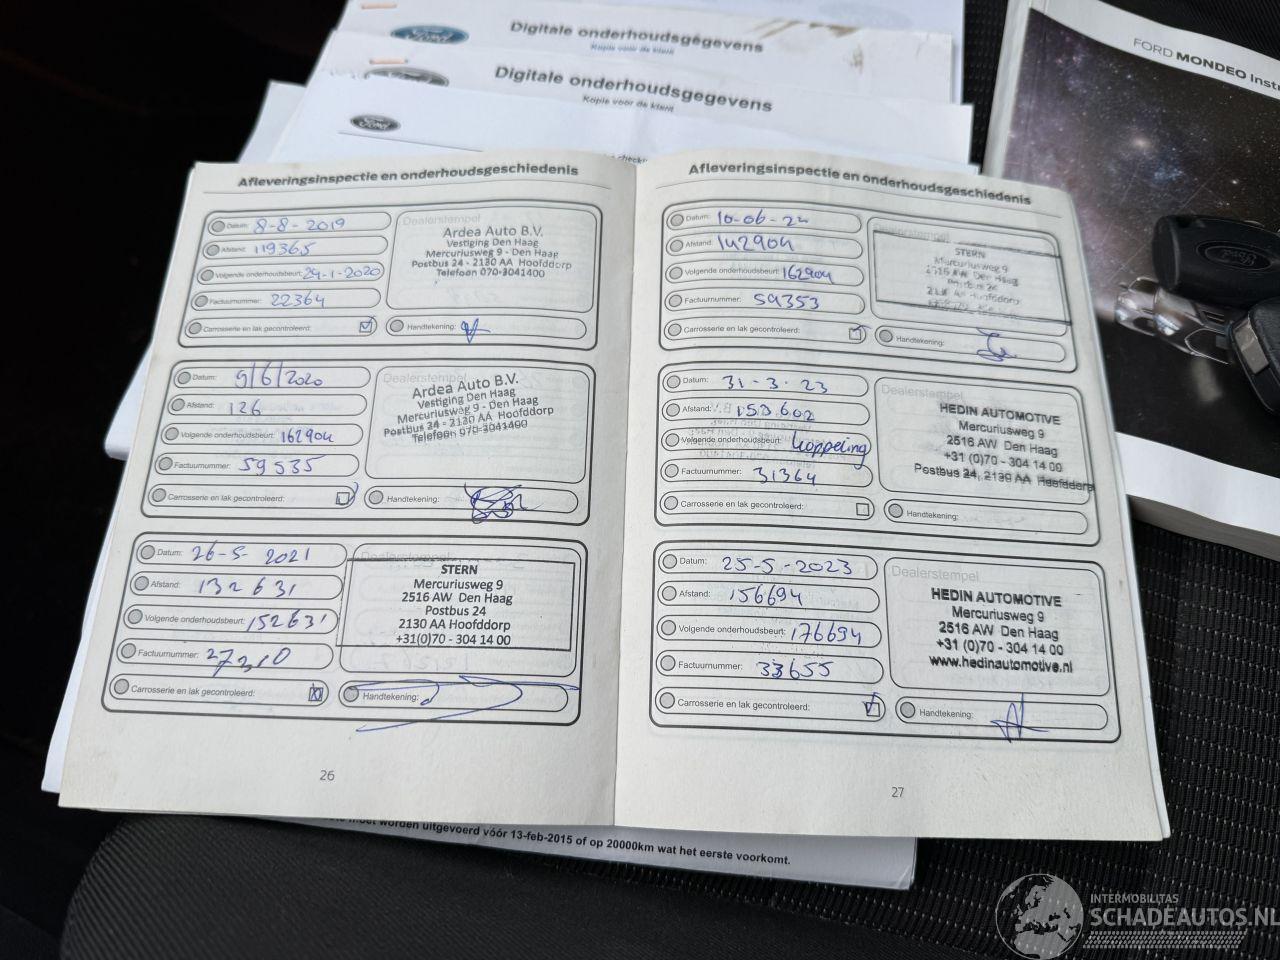 Ford
Digitale onderhoudsgegevens
Kopie voor de klant
Digitale onderhoudsgegevens
Kopie voor de klant
Ford
FORD MONDEO Instr
Ford
Afleveringsinspectie en onderhoudsgeschiedenis
Datum: 8-8-2019
Afstand: 119365
Volgende onderhoudsbeurt: 29-1-2020
Factuurnummer: 22364
Carrosserie en lak gecontroleerd:
Dealerstempel
Ardea Auto B.V.
Vestiging Den Haag
Mercuriusweg 9 - Den Haag
Postbus 24 - 2130 AA Hoofddorp
Telefoon 070-3041400
Handtekening:
Datum: 9/6/2020
Afstand: 126
Volgende onderhoudsbeurt: 162904
Factuurnummer: 59535
Carrosserie en lak gecontroleerd:
Dealerstempel
Ardea Auto B.V.
Vestiging Den Haag
Mercuriusweg 9 - Den Haag
Postbus 24 - 2130 AA Hoofddorp
Telefoon 070-3041400
Handtekening:
Datum: 26-5-2021
Afstand: 132631
Volgende onderhoudsbeurt: 152631
Factuurnummer: 27310
Carrosserie en lak gecontroleerd:
Dealerstempel
STERN
Mercuriusweg 9
2516 AW Den Haag
Postbus 24
2130 AA Hoofddorp
+31(0)70 - 304 14 00
Handtekening:
26
Afleveringsinspectie en onderhoudsgeschiedenis
Datum: 10-06-22
Afstand: 142904
Volgende onderhoudsbeurt: 162904
Factuurnummer: 59353
Carrosserie en lak gecontroleerd:
Dealerstempel
STERN
Mercuriusweg 9
2516 AW Den Haag
Postbus 24
2130 AA Hoofddorp
Handtekening:
Datum: 31-3-23
Afstand: 153602
Volgende onderhoudsbeurt: koppeling
Factuurnummer: 31364
Carrosserie en lak gecontroleerd:
Dealerstempel
HEDIN AUTOMOTIVE
Mercuriusweg 9
2516 AW Den Haag
+31 (0)70 - 304 14 00
Postbus 24, 2130 AA Hoofddorp
Handtekening:
Datum: 25-5-2023
Afstand: 156694
Volgende onderhoudsbeurt: 176694
Factuurnummer: 33655
Carrosserie en lak gecontroleerd:
Dealerstempel
HEDIN AUTOMOTIVE
Mercuriusweg 9
2516 AW Den Haag
+31 (0)70 - 304 14 00
www.hedinautomotive.nl
Handtekening:
27
moet worden uitgevoerd vóór 13-feb-2015 of op 20000km wat het eerste voorkomt.
INTERMOBILITAS
SCHADEAUTOS.NL